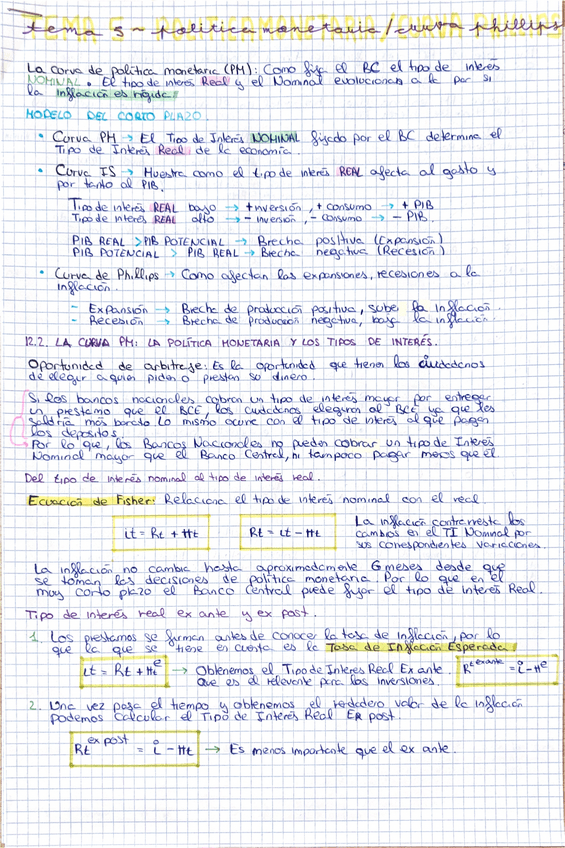 tema 5 ~ politica monetaria / curva phillips
La curva de política monetaria (PM): Como fija el BC el tipo de interes
NOMINAL. El tipo de interes Real y el Nominal evolucionan a la par si
la inflación es rígida.
MODELO DEL CORTO PLAZO
• Curva PM → El Tipo de Interés NOMINAL fijado por el BC determina el
Tipo de Interés Real de la economía.
• Curva IS → Muestra como el tipo de interés REAL afecta al gasto y
por tanto al PIB.
Tipo de interés REAL bajo → + inversión, + consumo → + PIB
Tipo de interés REAL alto → - inversión, - consumo → - PIB.
PIB REAL > PIB POTENCIAL → Brecha positiva (Expansión)
PIB POTENCIAL > PIB REAL → Brecha negativa (Recesión)
• Curva de Phillips → Como afectan las expansiones, recesiones a la
inflación.
- Expansión → Brecha de producción positiva, sube la inflación.
- Recesión → Brecha de producción negativa, baja la inflación.
12.2. LA CURVA PM: LA POLÍTICA MONETARIA Y LOS TIPOS DE INTERÉS.
Oportunidad de arbitraje: Es la oportunidad que tienen los ciudadanos
de elegir a quien piden o prestan su dinero.
Si los bancos nacionales cobran un tipo de interés mayor por entregar
un prestamo que el BCE, los ciudadanos elegiran al BCE ya que les
saldría más barato. Lo mismo ocurre con el tipo de interés al que pagan
los depositos.
Por lo que, los Bancos Nacionales no pueden cobrar un tipo de Interés
Nominal mayor que el Banco Central, ni tampoco pagar menos que él
Del tipo de interés nominal al tipo de interés real.
Ecuación de Fisher: Relaciona el tipo de interés nominal con el real.
it = Rt + πt Rt = it - πt La inflación contrarresta los
cambios en el TI Nominal por
sus correspondientes variaciones.
La inflación no cambia hasta aproximadamente 6 meses desde que
se toman las decisiones de política monetaria. Por lo que en el
muy corto plazo el Banco Central puede fijar el tipo de Interés Real.
Tipo de interés real ex ante y ex post.
1. Los prestamos se firman antes de conocer la tasa de inflación, por lo
que la que se tiene en cuenta es la Tasa de Inflación Esperada:
it = Rt + πt^e → Obtenemos el Tipo de Interes Real Ex ante. R^t ex ante = i - π^e
Que es el relevante para las inversiones.
2. Una vez pasa el tiempo y obtenemos el verdadero valor de la inflación
podemos calcular el Tipo de Interés Real Ex post.
Rt^ex post = i - πt → Es menos importante que el ex ante.